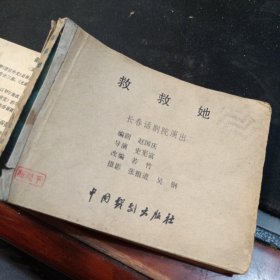 救救她
长春话剧院演出
编剧 赵国庆
导演 史宪富
改编 若竹
摄影 张祖道 吴钢
中国戏剧出版社